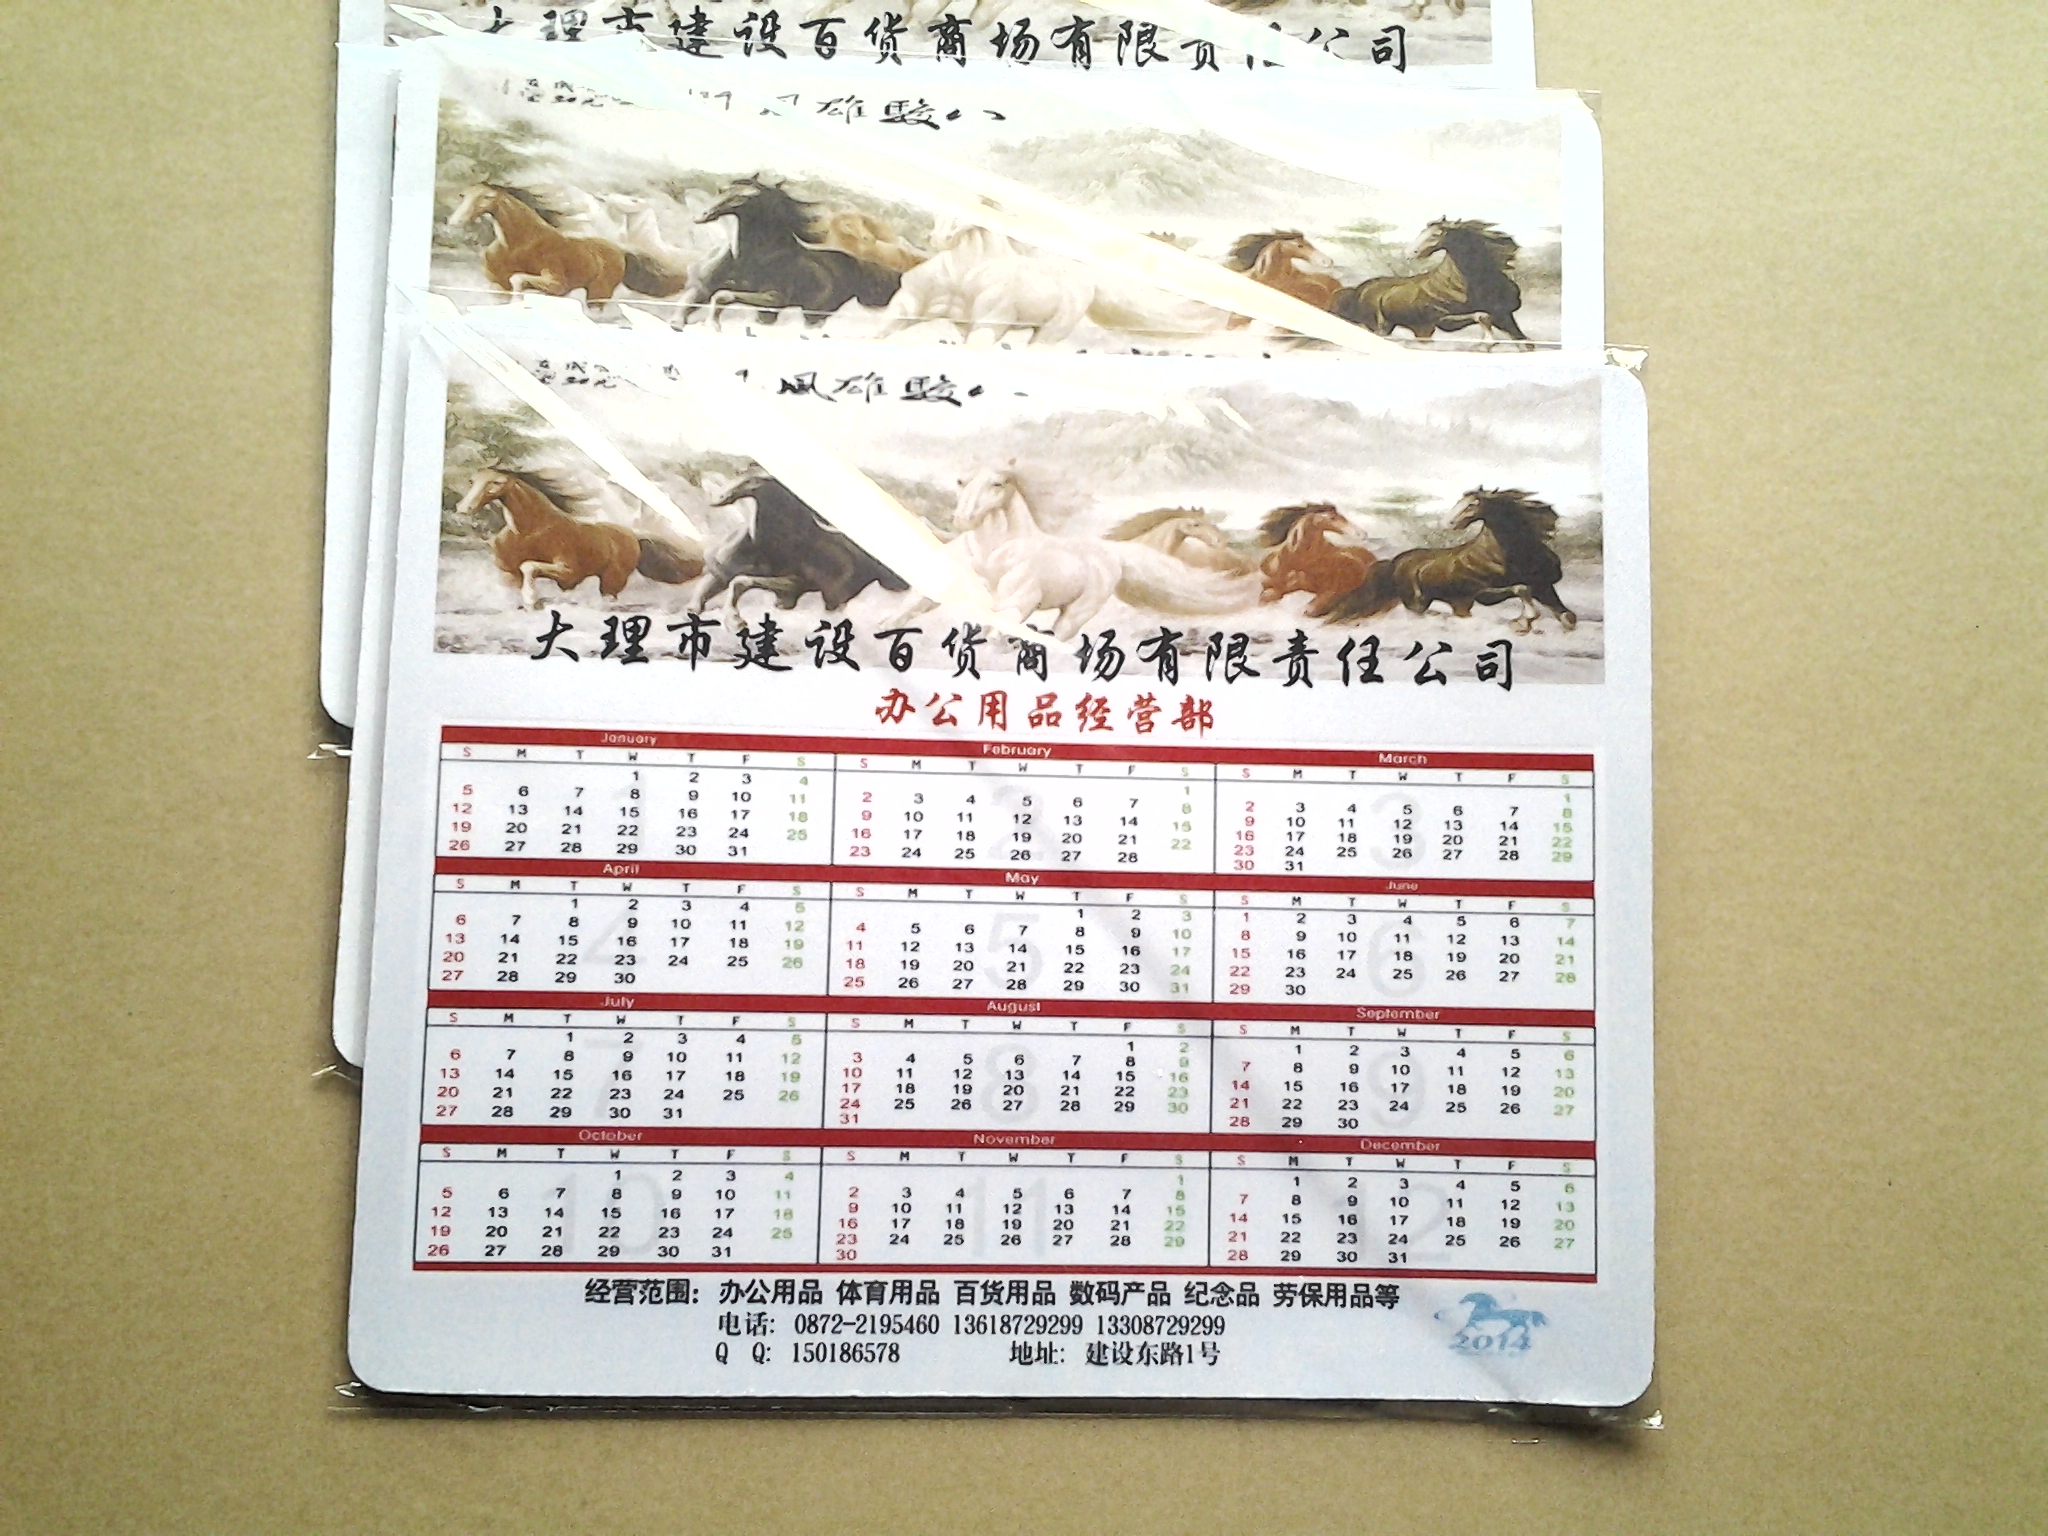 大理市建设百货商场有限责任公司
风雄骏八
风雄骏八
大理市建设百货商场有限责任公司
办公用品经营部
January February March
S M T W T F S S M T W T F S S M T W T F S
1 2 3 4 1 1
5 6 7 8 9 10 11 2 3 4 5 6 7 8 2 3 4 5 6 7 8
12 13 14 15 16 17 18 9 10 11 12 13 14 15 9 10 11 12 13 14 15
19 20 21 22 23 24 25 16 17 18 19 20 21 22 16 17 18 19 20 21 22
26 27 28 29 30 31 23 24 25 26 27 28 23 24 25 26 27 28 29
30 31
April May June
S M T W T F S S M T W T F S S M T W T F S
1 2 3 4 5 1 2 3 1 2 3 4 5 6 7
6 7 8 9 10 11 12 4 5 6 7 8 9 10 8 9 10 11 12 13 14
13 14 15 16 17 18 19 11 12 13 14 15 16 17 15 16 17 18 19 20 21
20 21 22 23 24 25 26 18 19 20 21 22 23 24 22 23 24 25 26 27 28
27 28 29 30 25 26 27 28 29 30 31 29 30
July August September
S M T W T F S S M T W T F S S M T W T F S
1 2 3 4 5 1 2 1 2 3 4 5 6
6 7 8 9 10 11 12 3 4 5 6 7 8 9 7 8 9 10 11 12 13
13 14 15 16 17 18 19 10 11 12 13 14 15 16 14 15 16 17 18 19 20
20 21 22 23 24 25 26 17 18 19 20 21 22 23 21 22 23 24 25 26 27
27 28 29 30 31 24 25 26 27 28 29 30 28 29 30
31
October November December
S M T W T F S S M T W T F S S M T W T F S
1 2 3 4 1 1 2 3 4 5 6
5 6 7 8 9 10 11 2 3 4 5 6 7 8 7 8 9 10 11 12 13
12 13 14 15 16 17 18 9 10 11 12 13 14 15 14 15 16 17 18 19 20
19 20 21 22 23 24 25 16 17 18 19 20 21 22 21 22 23 24 25 26 27
26 27 28 29 30 31 23 24 25 26 27 28 29 28 29 30 31
30
经营范围: 办公用品 体育用品 百货用品 数码产品 纪念品 劳保用品等
电话: 0872-2195460 13618729299 13308729299
Q Q: 150186578 地址: 建设东路1号
2014